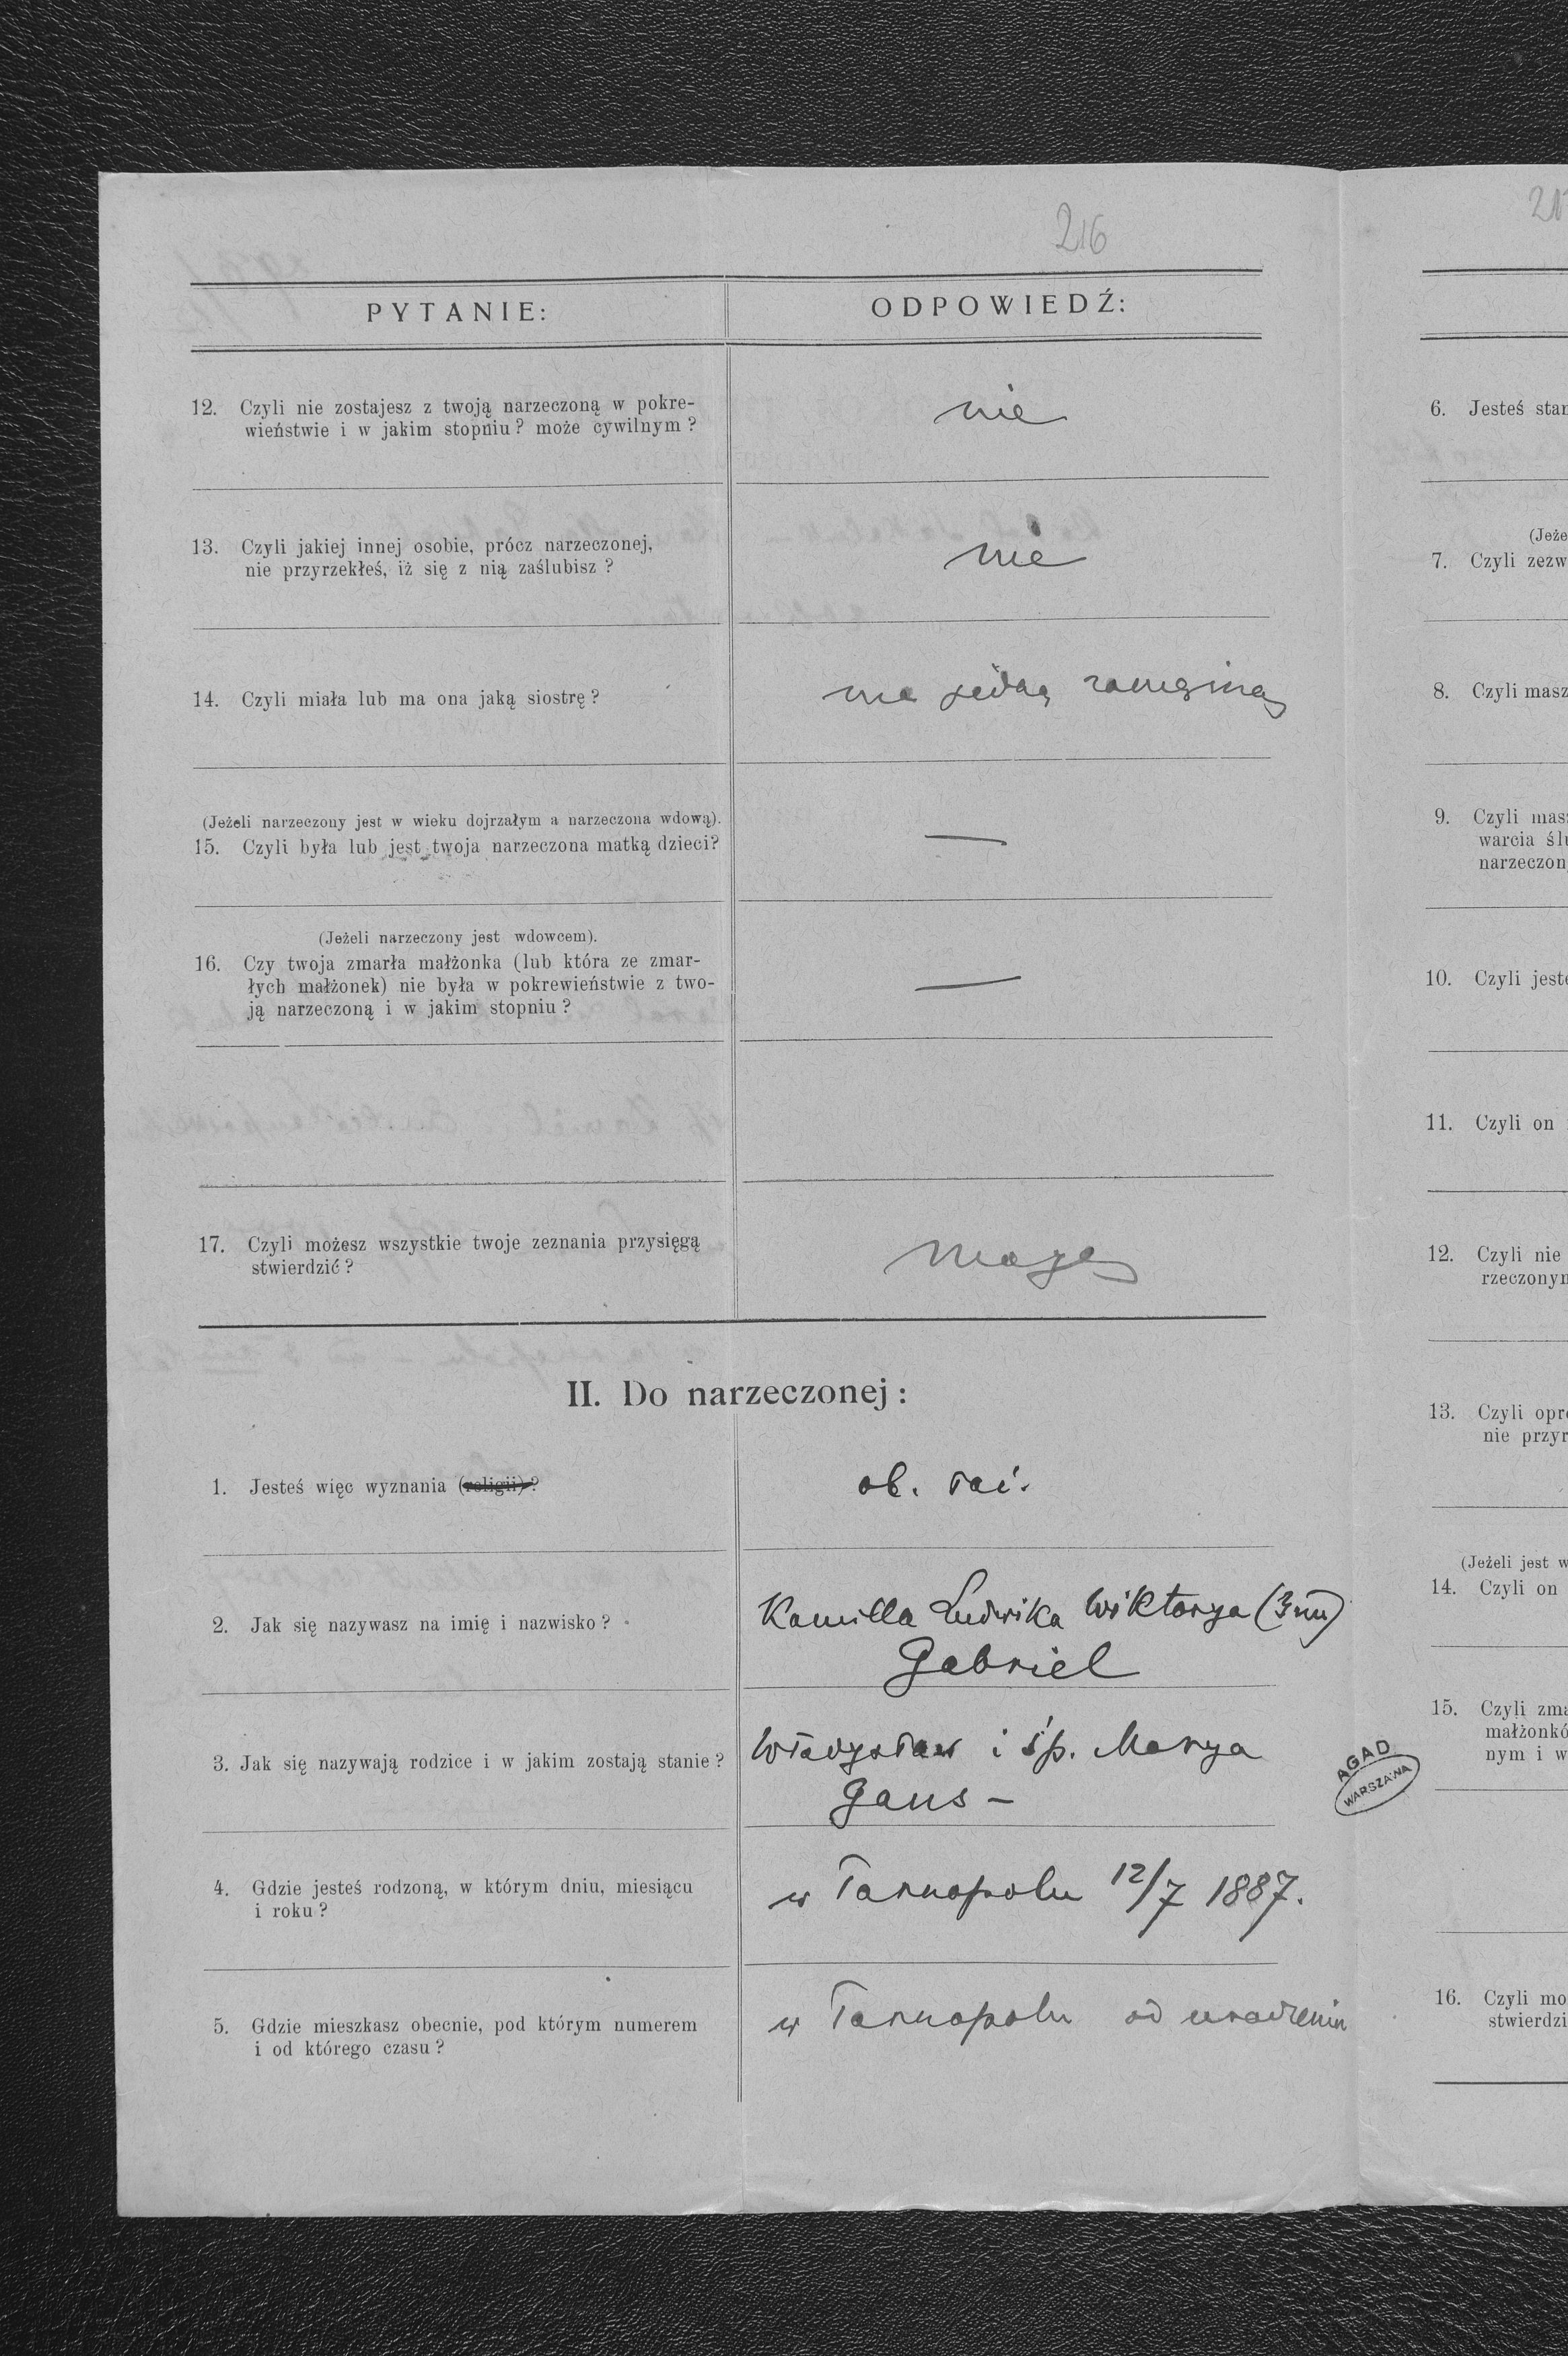 216
PYTANIE:
ODPOWIEDŹ:
12. Czyli nie zostajesz z twoją narzeczoną w pokre-
wieństwie i w jakim stopniu? może cywilnym?
nie
13. Czyli jakiej innej osobie, prócz narzeczonej,
nie przyrzekłeś, iż się z nią zaślubisz?
nie
14. Czyli miała lub ma ona jaką siostrę?
ma jedną zamężną
(Jeżeli narzeczony jest w wieku dojrzałym a narzeczona wdową).
15. Czyli była lub jest twoja narzeczona matką dzieci?
—
(Jeżeli narzeczony jest wdowcem).
16. Czy twoja zmarła małżonka (lub która ze zmar-
łych małżonek) nie była w pokrewieństwie z two-
ją narzeczoną i w jakim stopniu?
—
17. Czyli możesz wszystkie twoje zeznania przysięgą
stwierdzić?
mogę
II. Do narzeczonej:
1. Jesteś więc wyznania (religii)?
ob. łać.
2. Jak się nazywasz na imię i nazwisko?
Kamilla Ludwika Wiktorya (3im)
Gabriel
3. Jak się nazywają rodzice i w jakim zostają stanie?
Władysław i śp. Marya
Gaus –
4. Gdzie jesteś rodzoną, w którym dniu, miesiącu
i roku?
w Tarnopolu 12/7 1887.
5. Gdzie mieszkasz obecnie, pod którym numerem
i od którego czasu?
w Tarnopolu od urodzenia
AGAD
WARSZAWA
6. Jesteś stan
(Jeże
7. Czyli zezw
8. Czyli masz
9. Czyli mas
warcia ślu
narzeczon
10. Czyli jeste
11. Czyli on
12. Czyli nie
rzeczonym
13. Czyli opró
nie przyr
(Jeżeli jest w
14. Czyli on
15. Czyli zma
małżonkó
nym i w
16. Czyli mo
stwierdzi